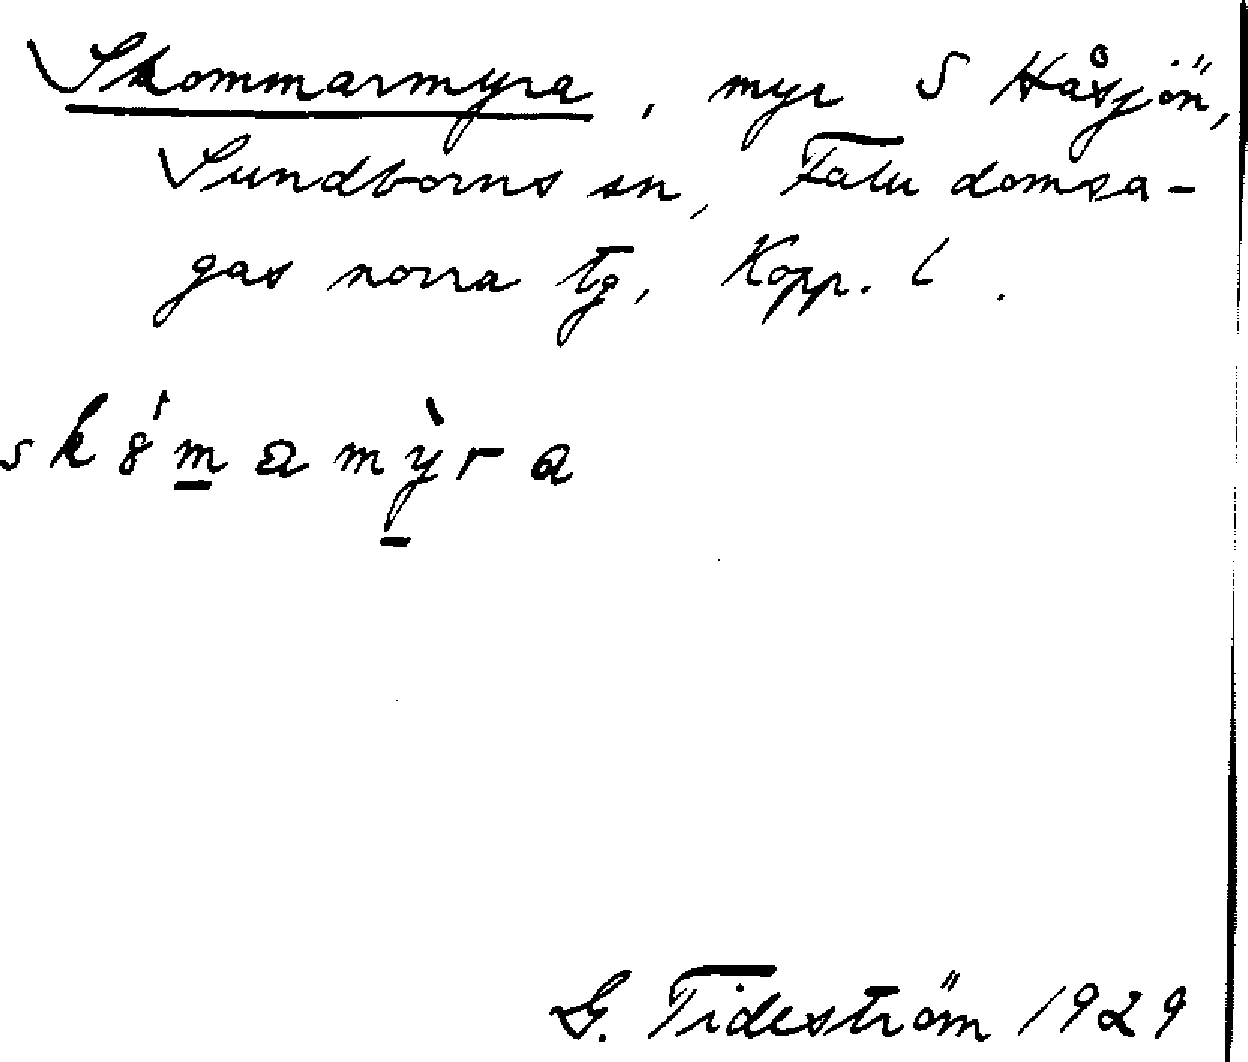 Skommarmyra, myr S Håsjön,
Sundborns sn, Falu domsa-
gas norra tg, Kopp. l.
sk8́mamỳra
G. Tideström 1929